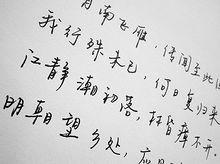 月南飞雁,传闻至此回
我行殊未已,何日复归来
江静潮初落,林昏瘴不开
明朝望乡处,应